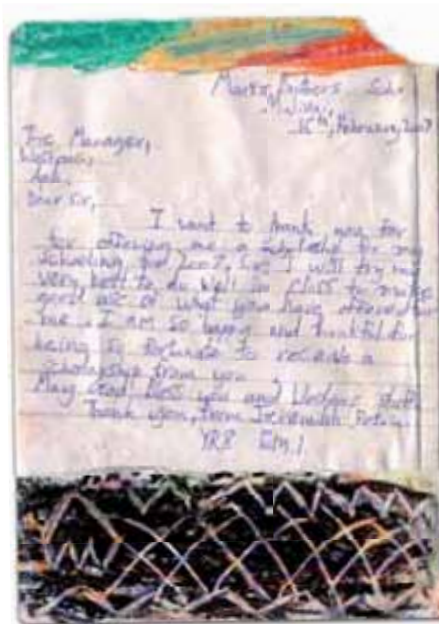 Marist Fathers Sch.
15th, February, 2007
The Manager,
Westpac,
Dear Sir,
I want to thank you for
for offering me a scholarship for my
schooling for 2007. Sir I will try my
very best to do well in class to make
good use of what you have offered for
me. I am so happy and thankful for
being so fortunate to receive a
scholarship from you.
May God bless you and Westpac staff.
Thank you, from Jeremiah
YR8